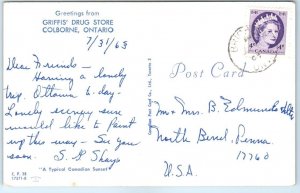 Greetings from
GRIFFIS' DRUG STORE
COLBORNE, ONTARIO
7/31/63
Dear Friends -
Having a lovely
trip. Ottawa to-day -
Lovely scenery sure
would like to paint
up this way - So you
soon. S. H. Shays
"A Typical Canadian Sunset"
Post Card
CANADA 4¢
Mr. and Mrs. B. Edmunds
North Bend, Penna.
17760
U.S.A.